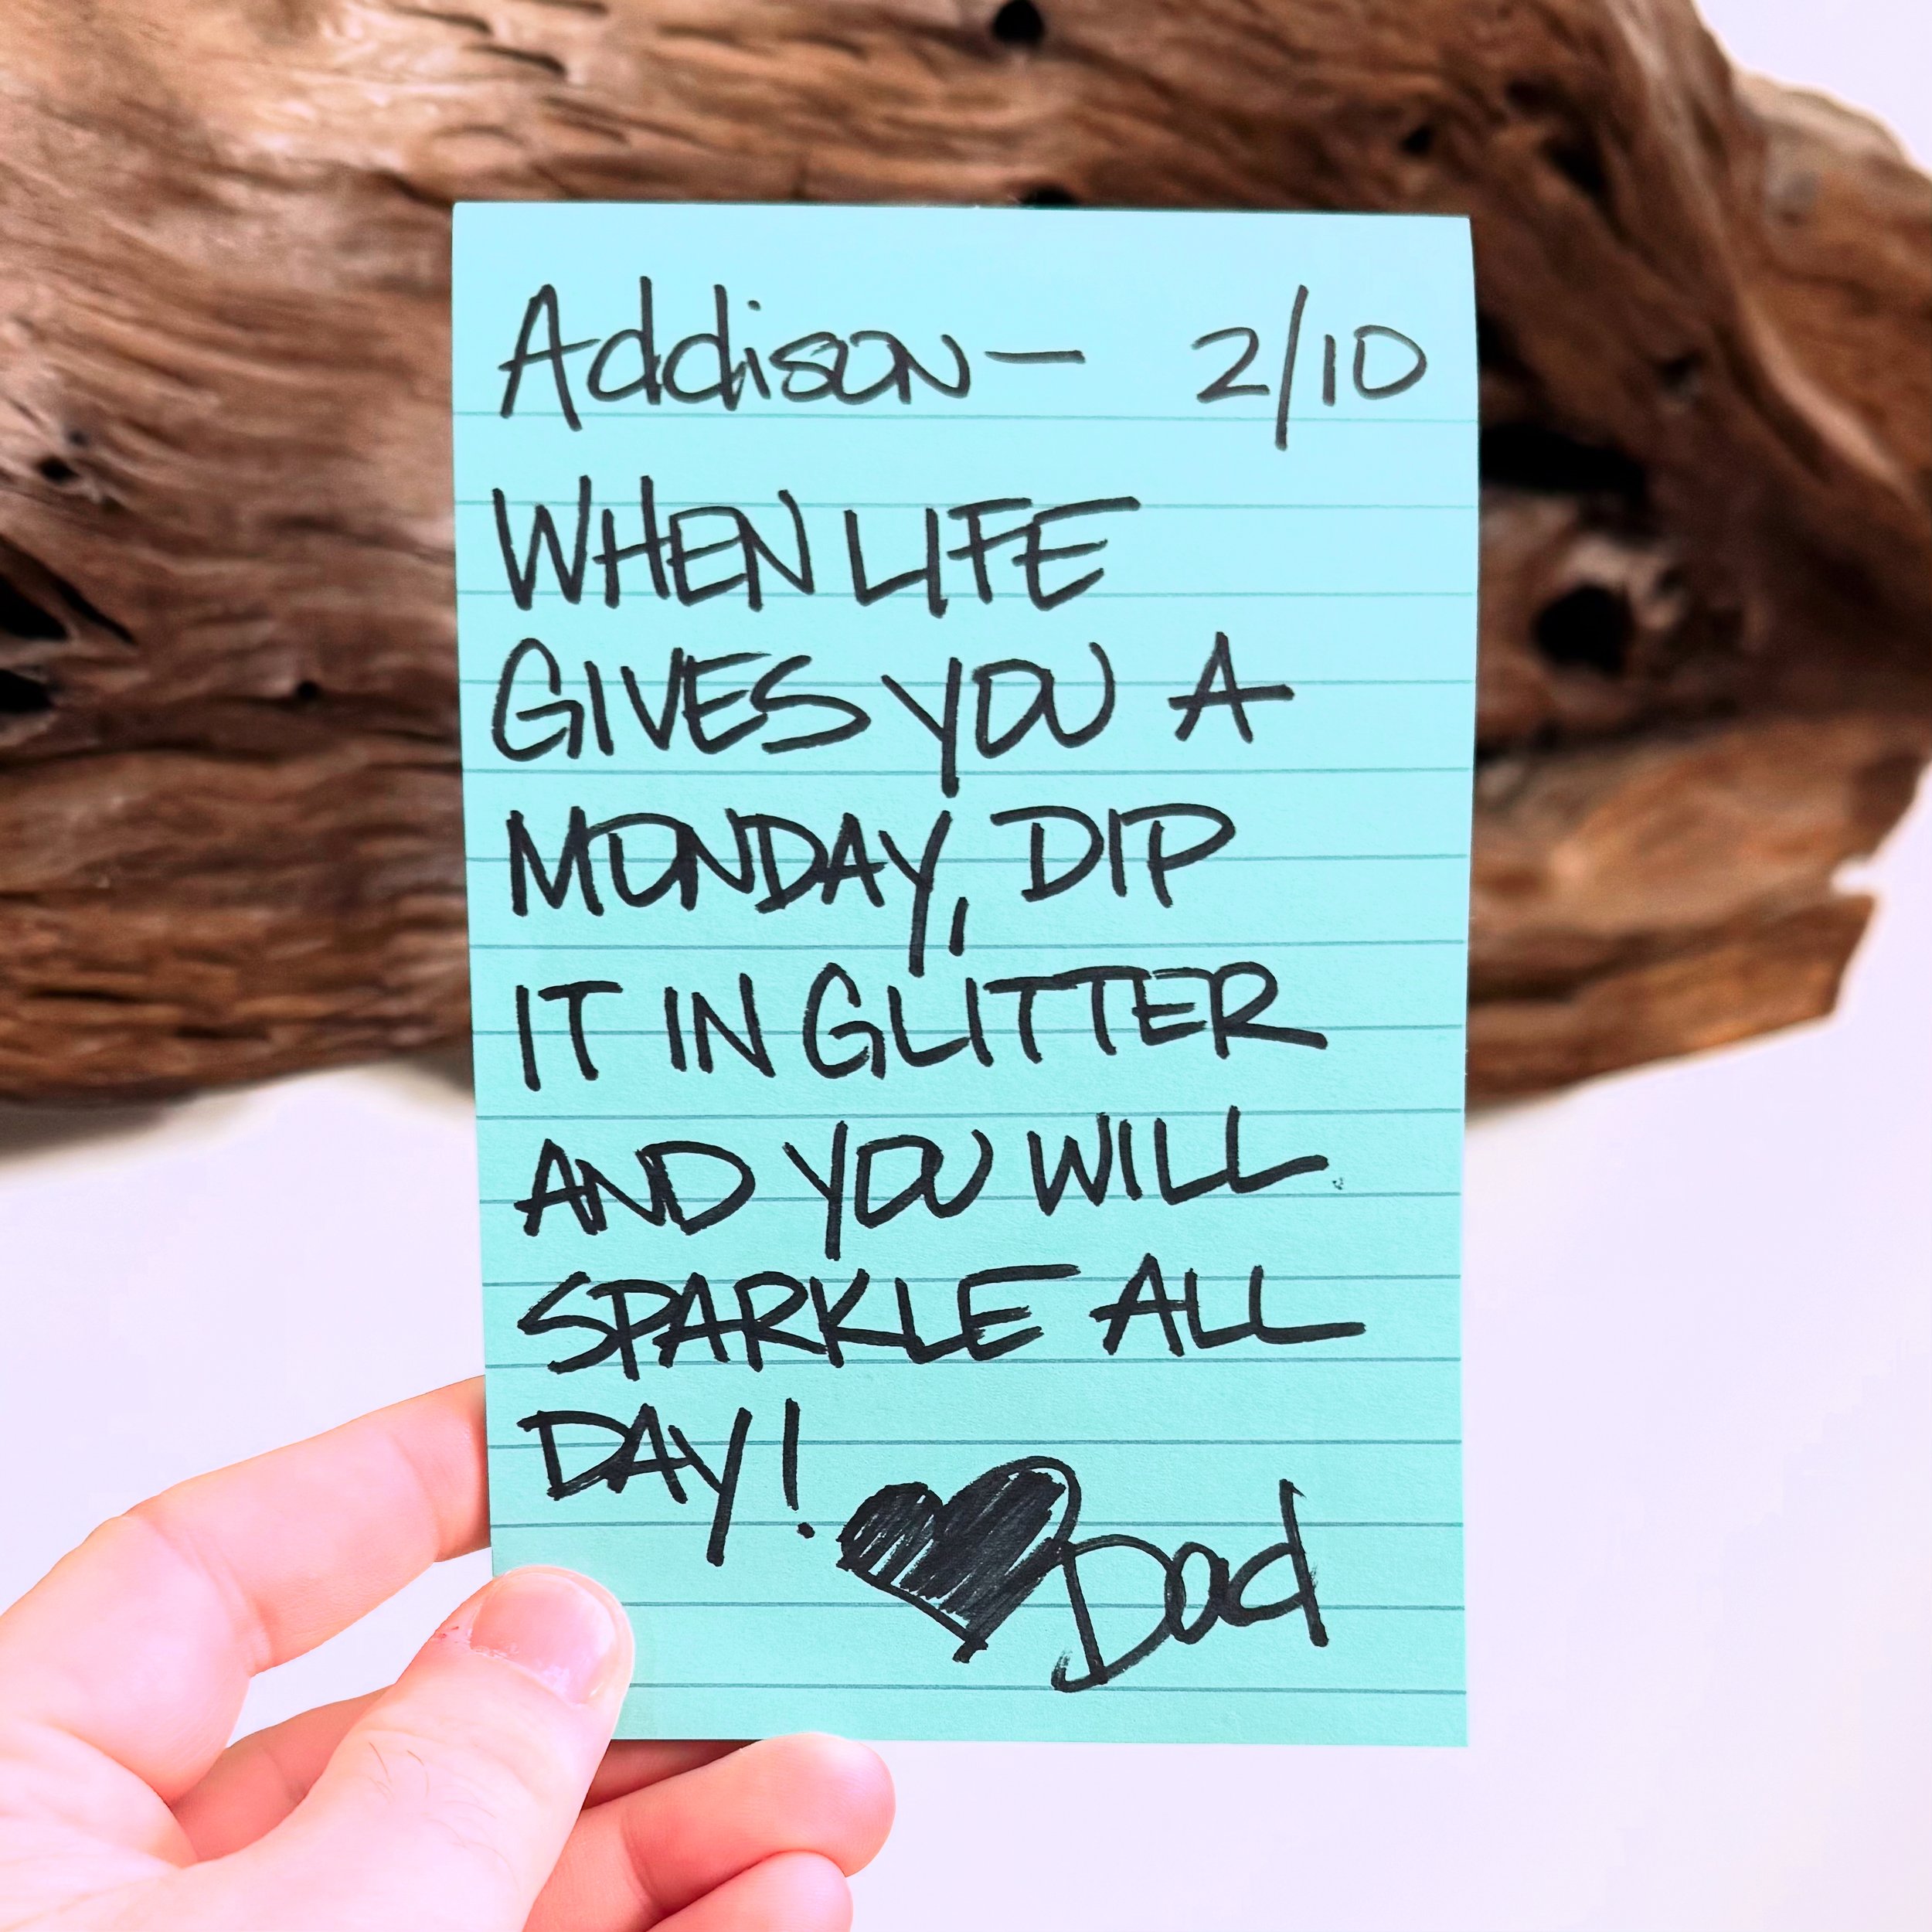 Addison— 2/10
WHEN LIFE
GIVES YOU A
MONDAY, DIP
IT IN GLITTER
AND YOU WILL
SPARKLE ALL
DAY!
♥Dad